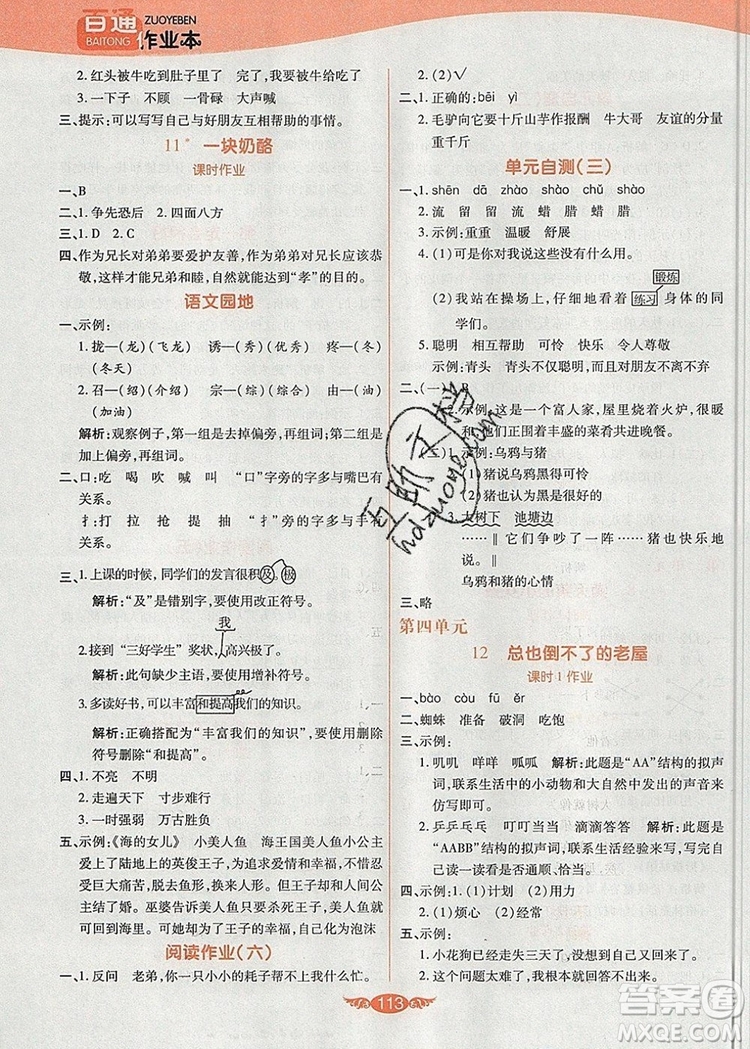 百通
BAITONG
ZUOYEBEN
作业本
2. 红头被牛吃到肚子里了 完了,我要被牛给吃了
3. 一下子 不顾 一骨碌 大声喊
三、提示:可以写写自己与好朋友互相帮助的事情。
11* 一块奶酪
课时作业
一、B
二、1. 争先恐后 2. 四面八方
三、1. D 2. C
四、作为兄长对弟弟要爱护友善,作为弟弟对兄长应该恭
敬,这样才能兄弟和睦,自然就能达到“孝”的目的。
语文园地
一、示例:
1. 拢—(龙)(飞龙) 诱—(秀)(优秀) 疼—(冬)
(冬天)
2. 召—(绍)(介绍) 宗—(综)(综合) 由—(油)
(加油)
解析:观察例子,第一组是去掉偏旁,再组词。第二组是
加上偏旁,再组词。
二、口:吃 喝 吹 喊 叫 “口”旁的字多与嘴巴有
关系。
扌:打 拉 抢 提 抽 “扌”旁的字多与手有
关系。
三、1. 上课的时候,同学们的发言很积及。极
解析:“及”是错别字,要使用改正符号。
我
2. 接到“三好学生”奖状,高兴极了。
解析:此句缺少主语,要使用增补符号。
3. 多读好书,可以丰富和提高我们的知识。
解析:正确搭配为“丰富我们的知识”,所以要使用删除
符号删除“和提高”。
四、1. 不亮 不明
2. 走遍天下 寸步难行
3. 一时强弱 万古胜负
五、示例:《海的女儿》 小美人鱼 海王国美人鱼小公主
爱上了陆地上的英俊王子,为追求爱情和幸福,不惜忍
受巨大痛苦,脱去鱼形,换来人形。但王子和人间公主
结了婚。巫婆告诉美人鱼只要杀死王子,美人鱼就可以
回到海里。可她为王子的幸福,自己投入海中化为泡沫
阅读作业(六)
一、1. 反问 老弟,你一个小小的耗子帮不上我什么忙。
2. (2)√
二、1. 正确的:bēi yì
2. 毛驴向它要十斤山芋作报酬 牛大哥 友谊的分量
重千斤
单元自测(三)
一、1. shēn dā zhào shào chǔ shào
2. 流 留 留 流 蜡 腊 腊 蜡
3. 示例:重重 温暖 舒展
4. (1)可是你对我说这些又有什么用呢?
锻炼
(2)我站在操场上,仔细地看着练习身体的同
学们。
5. 聪明 相互帮助 可怜 快乐 令人尊敬
示例:青头 青头不仅聪明,而且对朋友不离不弃
二、(一)1. B
2. 示例:这是一个富人家,屋里烧着火炉,很暖
和,家人正围着丰盛的菜肴共进晚餐。
(二)1. 示例:乌鸦与猪
2. (1)猪说乌鸦黑得可怜
(2)猪也认为自己黑得可爱
3. 大树下 池塘边
……‖它们争吵了一阵……‖猪也快乐地
说。
乌鸦和猪的心情
三、略
第四单元
12 总也倒不了的老屋
课时1作业
一、bào còu fǔ ěr
二、蜘蛛 准备 破洞 吃饱
三、示例:
1. 叽叽 咩咩 呱呱 解析:此题是“AA”结构的拟声
词,联系生活中的小动物和大自然中发出的声音来
仿写即可。
2. 乒乒乓乓 叮叮当当 滴滴答答 解析:此题是
“AABB”结构的拟声词,联系生活经验来写,写完自
己读一读看是否通顺、恰当。
四、示例:1. (1)计划 (2)用力
2. (1)烦心 (2)经常
五、示例:
1. 小花狗已经走失三天了,没想到自己又回来了。
2. 这个问题太难了,我根本就回答不出来。
113
互助文档
hdzuoye.com
答案圈
MXQE.COM